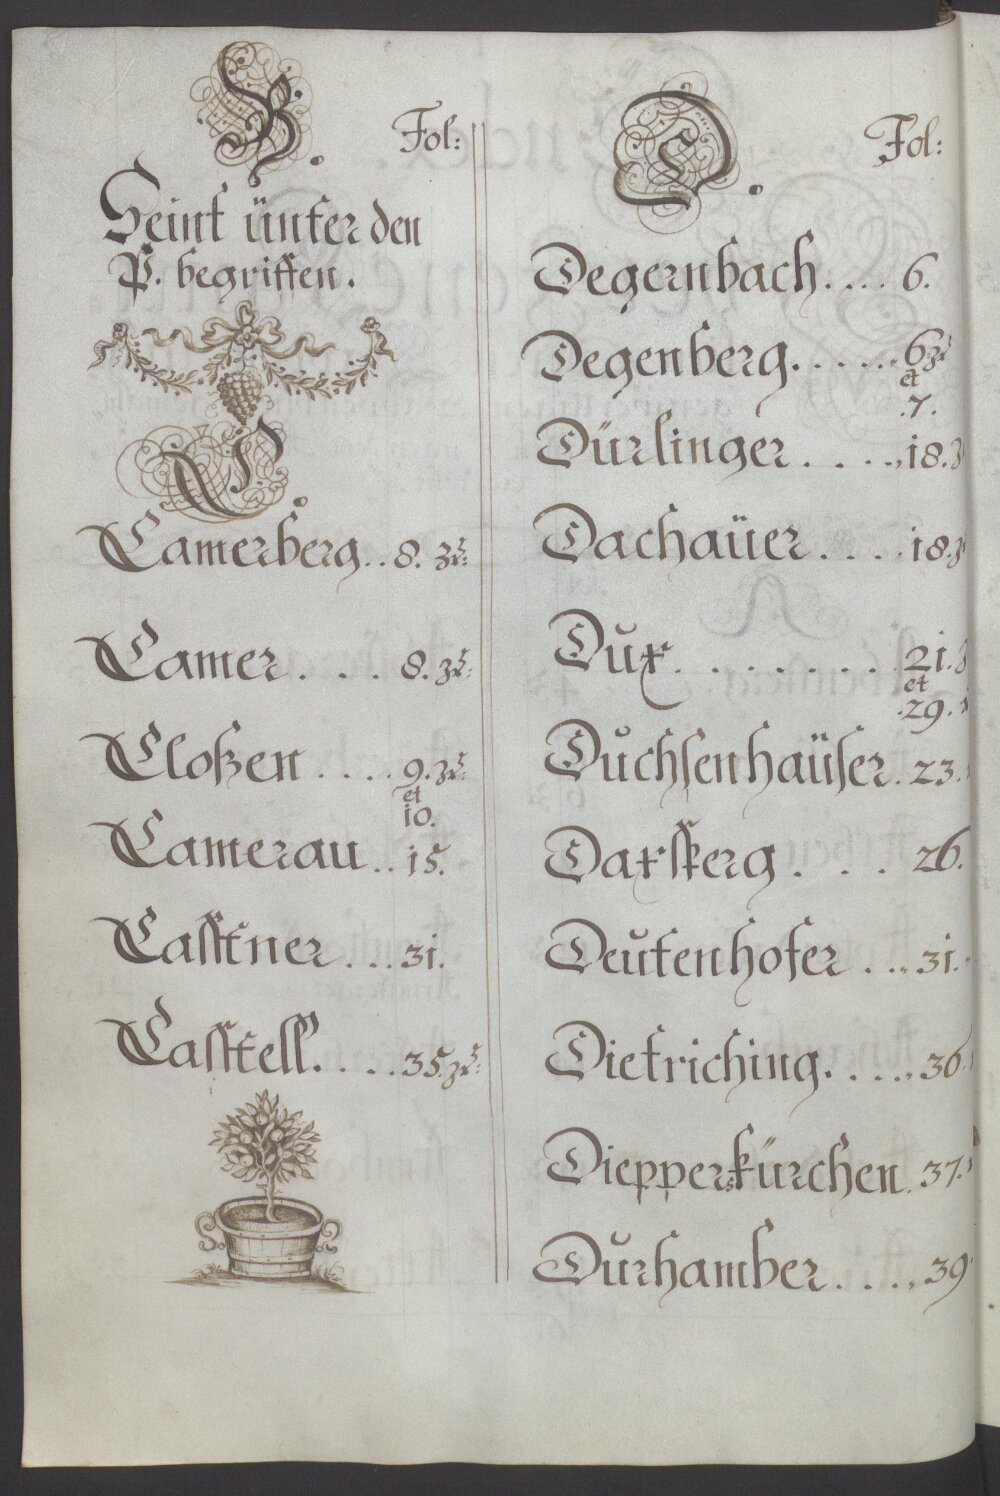 B.
Fol:
Seint ünter den
P. begriffen.
C.
Camerberg.. 8. zc:
Camer.... 8. zc:
Cloßen.... 9. zc:
et
10.
Camerau.. 15.
Casstner... 31.
Casstell.... 35. zc:
D.
Fol:
Degernbach.... 6.
Degenberg...... 6 zc
et
.7.
Dürlinger..... 18.
Dachaüer..... 18.
Dux......... 21.
et
.29.
Duchsenhaüser. 23.
Daxsperg.... 26.
Deutenhofer.... 31.
Dietriching..... 36
Diepperskürchen. 37.
Durhamber..... 39